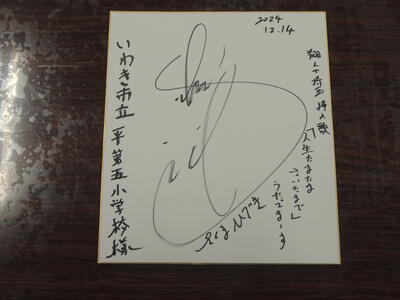 2024
12.14
翔んで埼玉 挿入歌
「人生たまたま
さいたまで」
うたってまーす
いわき市立 平第五小学校様